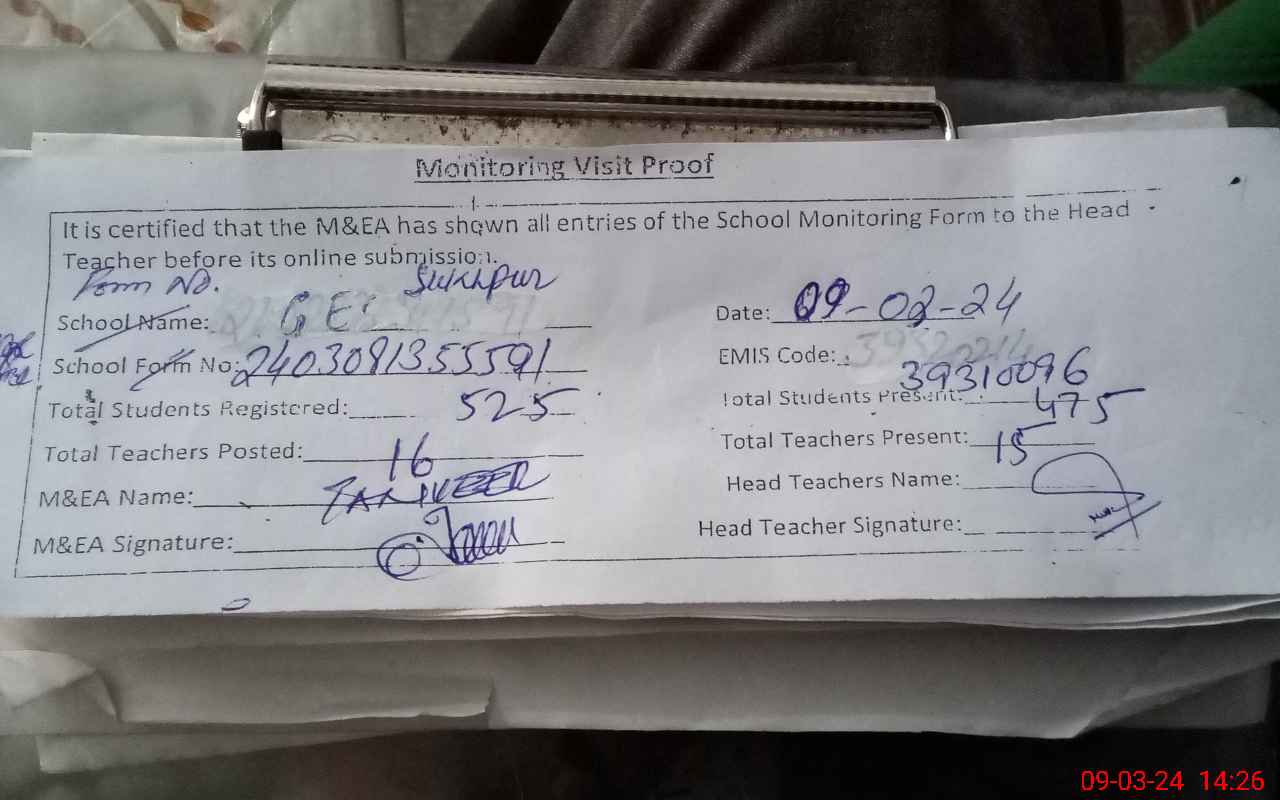 Monitoring Visit Proof
It is certified that the M&EA has shown all entries of the School Monitoring Form to the Head
Teacher before its online submission.
Form No. Sukhpur
School Name: GES Date: 09-03-24
School Form No: 2403081355591 EMIS Code: 39310096
Total Students Registered: 525 Total Students Present: 475
Total Teachers Posted: 16 Total Teachers Present: 15
M&EA Name: TANVEER Head Teachers Name:
M&EA Signature: Head Teacher Signature:
09-03-24 14:26